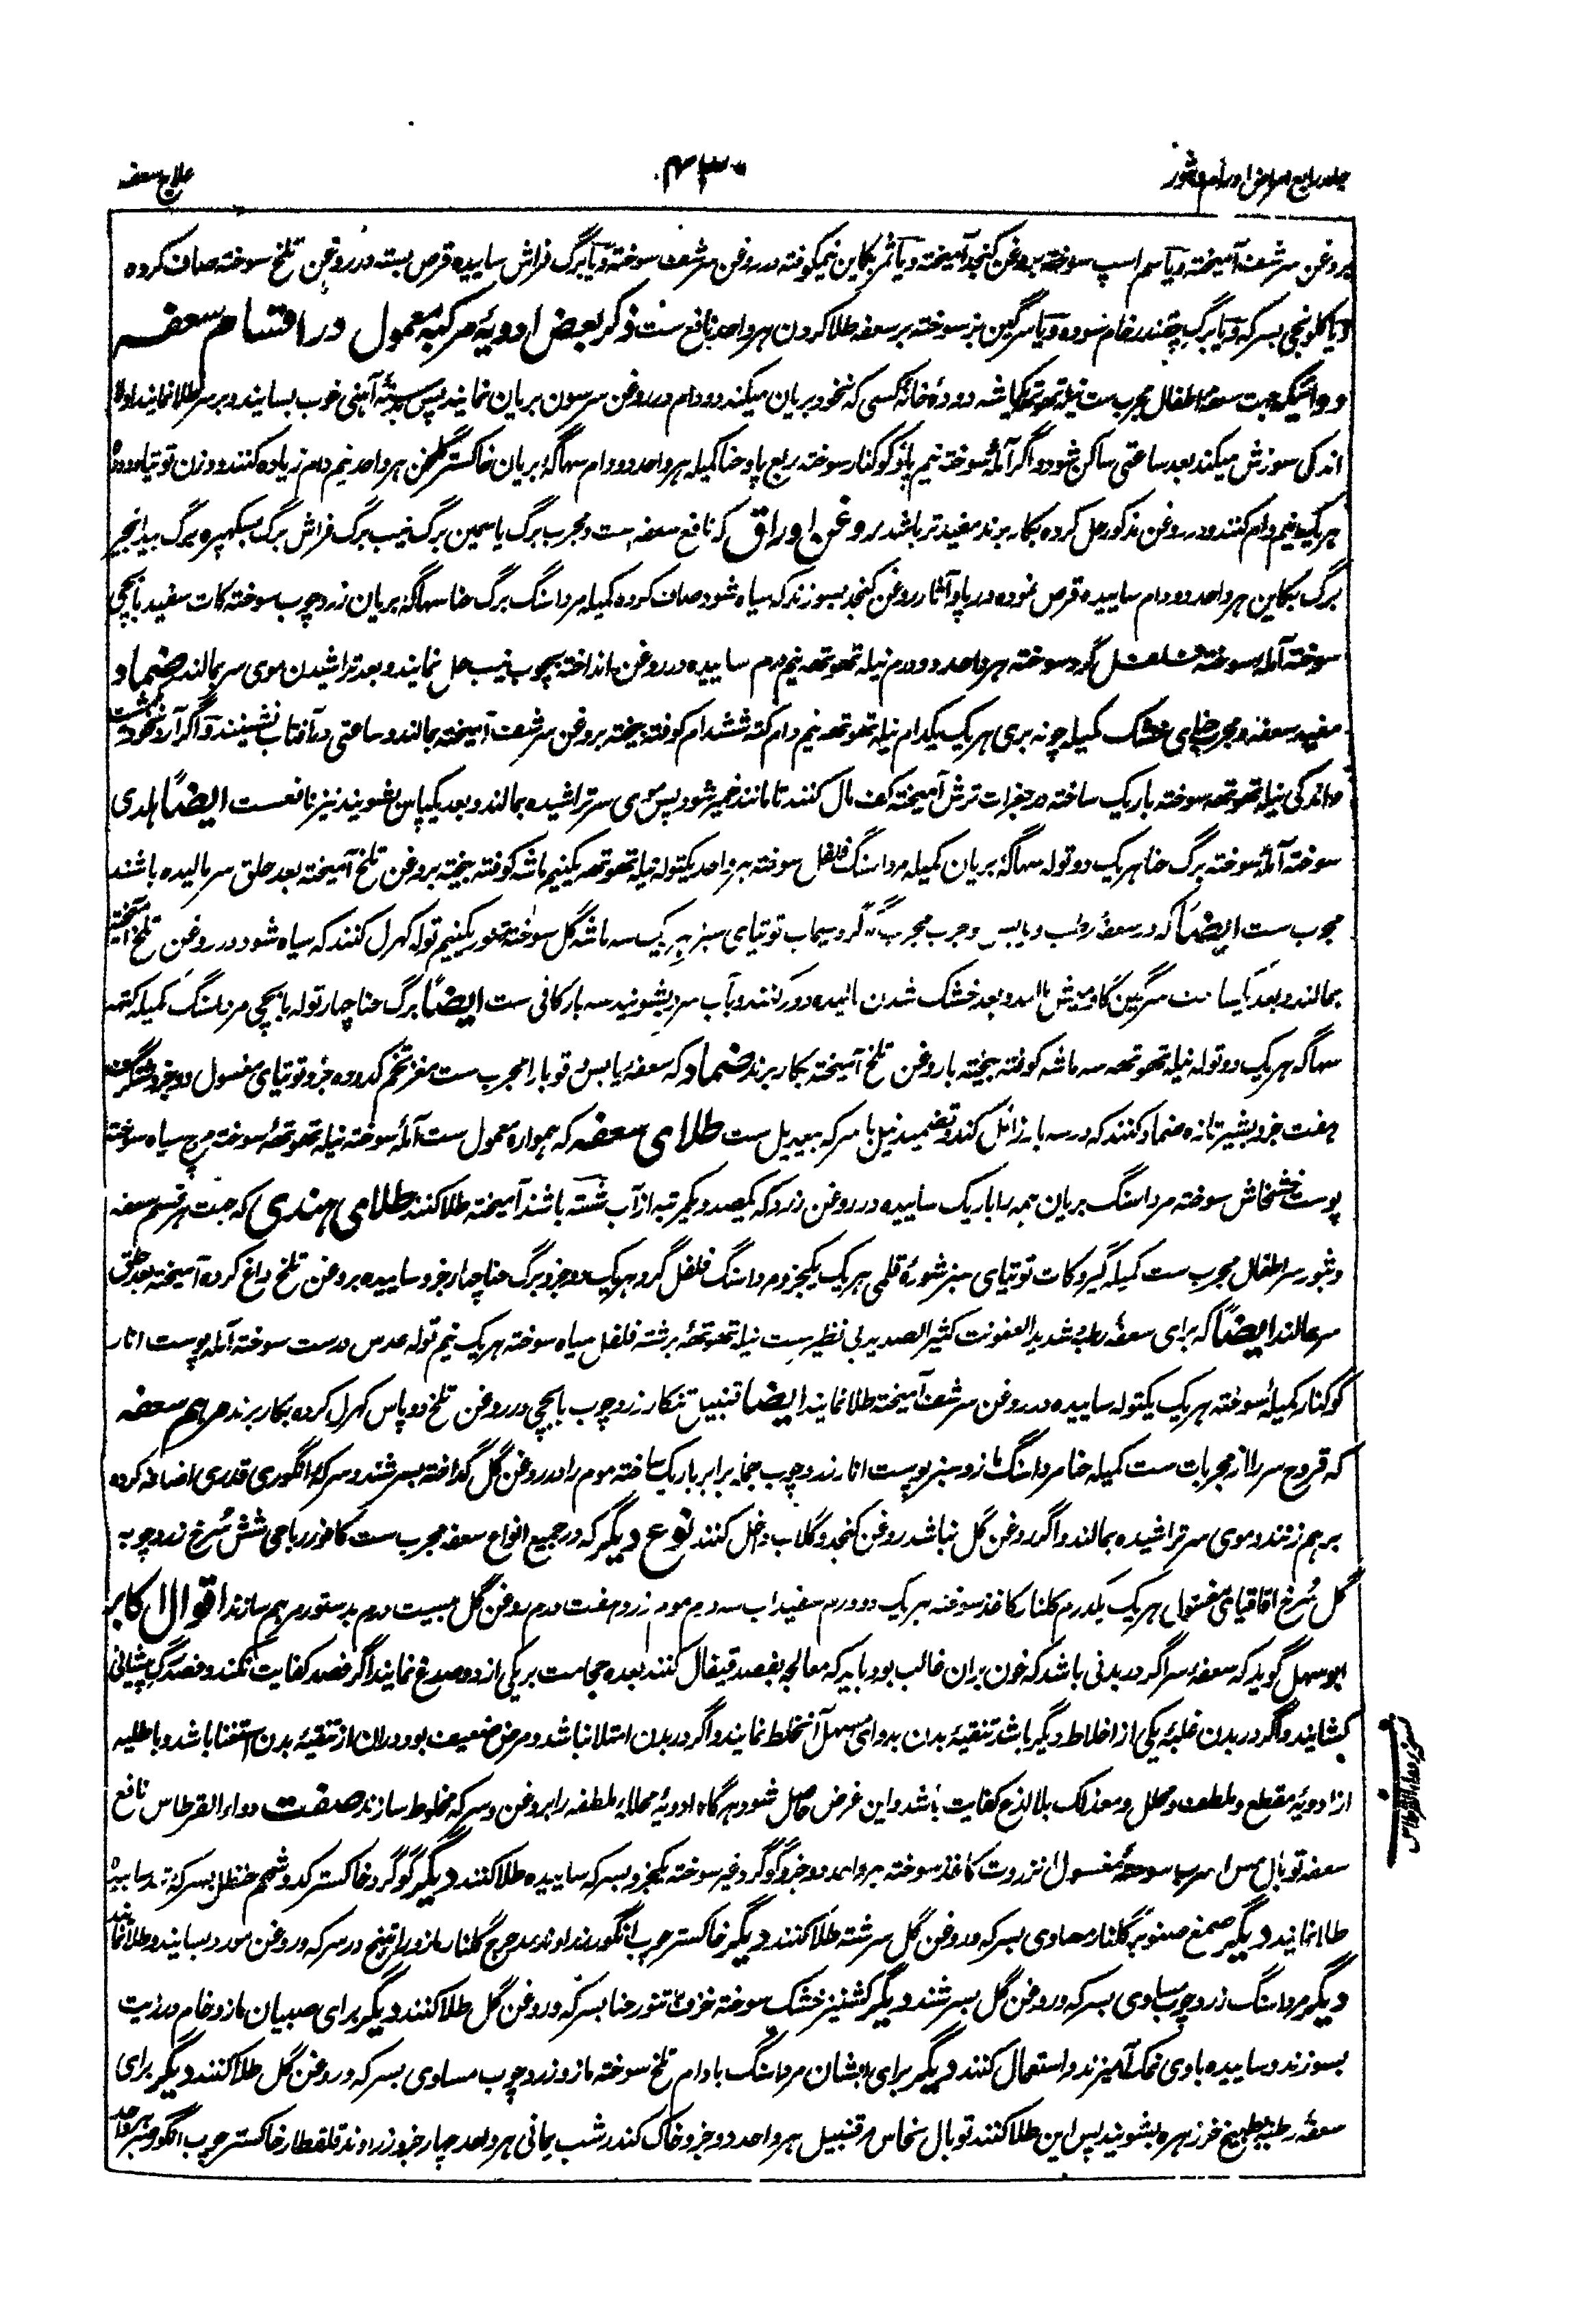 جلد رابع امراض اورام و بثور
۴۳۰
علاج سعفه
بروغن سرشف آمیخته و یا سم اسپ سوخته بروغن کنجد آمیخته و یا ثمر بکاین نیمکوفته در روغن سرشف سوخته و یا برگ فراش ساییده قرص بسته در روغن تلخ سوخته صاف کرده
و یا کلونجی بسرکه و یا برگ چقندر خام سوده و یا سرگین بز سوخته بر سعفه طلا کردن هر واحد نافع ست ذکر بعض ادویهٔ مرکبه معمول در اقسام سعفه
دوائیکه جهت سعفهٔ اطفال مجرب ست نیله تهوتهه یکماشه دودهٔ خانهٔ کسی که نخود بریان میکند دو دام در روغن سرسون بریان نمایند پس بدستهٔ آهنی خوب بسایند و بر سر طلا نمایند اولا
اندکی سوزش میکند بعد ساعتی ساکن شود و اگر آملهٔ سوخته نیم پاو کوکنار سوخته ربع پاو حنا کمیله هر واحد دو دام سهاگهٔ بریان خاکستر گلخن هر واحد نیم دام زیاده کنند و وزن توتیا و دوده
هر یک نیم دام کنند و در روغن مذکور حل کرده بکار برند مفیدتر باشد روغن اوراق که نافع سعفه ست و مجرب برگ یاسمین برگ نیب برگ فراش برگ بسکهپره برگ بیدانجیر
برگ بکاین هر واحد دو دام ساییده قرص نموده در پاو آثار روغن کنجد بسوزند که سیاه شود صاف کرده کمیله مرداسنگ برگ حنا سهاگهٔ بریان زردچوب سوخته کات سفید بابچی
سوخته آمله سوخته فلفل گرد سوخته هر واحد دو درم نیله تهوتهه نیم درم ساییده در روغن انداخته بچوب نیب حل نمایند و بعد تراشیدن موی سر بمالند ضماد
مفید سعفه و مجرب حنای خشک کمیله چونه بری هر یک یکدام نیله تهوتهه نیم دام کته ششدام کوفته بیخته بروغن سرشف آمیخته بمالند و ساعتی در آفتاب نشینند و اگر آرد نخود هشت
و اندکی نیله تهوتهه سوخته باریک ساخته در جغرات ترش آمیخته کف مال کنند تا مانند خمیر شود پس موی سر تراشیده بمالند و بعد یکپاس بشویند نیز نافعست ایضاً هلدی
سوخته آملهٔ سوخته برگ حنا هر یک دو توله سهاگهٔ بریان کمیله مرداسنگ فلفل سوخته هر واحد یکتوله نیله تهوتهه یکنیم ماشه کوفته بیخته بروغن تلخ آمیخته بعد حلق سر مالیده باشند
مجرب ست ایضاً که در سعفهٔ رطب و یابس و جرب مجرب گوگرد سیماب توتیای سبز هر یک سه ماشه گل سوختهٔ تنور یکنیم توله کهرل کنند که سیاه شود در روغن تلخ آمیخته
بمالند و بعد یکساعت سرگین گاومیش مالند و بعد خشک شدن مالیده دور کنند و بآب سرد بشویند سه بار کافی ست ایضاً برگ حنا چهار توله بابچی مرداسنگ کمیله کتهه
سهاگه هر یک دو توله نیله تهوتهه سه ماشه کوفته بیخته با روغن تلخ آمیخته بکار برند ضماد که سعفهٔ یابس و قوبا را مجرب ست مغز تخم کدو ده جزو توتیای مغسول دو جزو شنگرف
هفت جزو بشیر تازه ضماد کنند که در سه بار زائل کند و تضمید نیل با سرکه بیبدیل ست طلای سعفه که همواره معمول ست آملهٔ سوخته نیله تهوتههٔ سوخته مرچ سیاه سوخته
پوست خشخاش سوخته مرداسنگ بریان همه را باریک ساییده در روغن زرد که یکصد و یکمرتبه از آب شسته باشند آمیخته طلا کنند طلای هندی که جهت هر قسم سعفه
و بثور سر اطفال مجرب ست کمیله گیرو کات توتیای سبز شورهٔ قلمی هر یک یکجزو مرداسنگ فلفل گرد هر یک دو جزو برگ حنا چهار جزو ساییده بروغن تلخ داغ کرده آمیخته بعد حلق
سر مالند ایضاً که برای سعفهٔ رطب شدید العفونت کثیر الصدید بی نظیر ست نیله تهوتههٔ برشته فلفل سیاه سوخته هر یک نیم توله عدس درست سوخته آمله پوست انار
کوکنار کمیلهٔ سوخته هر یک یکتوله ساییده در روغن سرشف آمیخته طلا نمایند ایضا قنبیل تنکار زردچوب بابچی در روغن تلخ دو پاس کهرل کرده بکار برند مرهم سعفه
که قروح سر را از مجربات ست کمیله حنا مرداسنگ مازو سبز پوست انار زردچوب جمله برابر باریک ساخته موم را در روغن گل گداخته بسرشند و سرکهٔ انگوری قدری اضافه کرده
برهم زنند و موی سر تراشیده بمالند و اگر روغن گل نباشد روغن کنجد و گلاب داخل کنند نوع دیگر که در جمیع انواع سعفه مجرب ست کافور رباحی شش سرخ زردچوبه
گل سرخ اقاقیای مغسول هر یک یکدرم گلنار کاغذ سوخته هر یک دو درم سفیداب سه درم موم زرد هفت درم روغن گل بیست درم بدستور مرهم سازند اقوال اکابر
ابو سهل گوید که سعفهٔ سر اگر در بدنی باشد که خون بران غالب بود باید که معالجه بفصد قیفال کنند بعده حجامت بر یکی از دو صدغ نمایند اگر فصد کفایت نکند و فصد رگ پیشانی
بکشایند و اگر در بدن غلبهٔ یکی از اخلاط دیگر باشد تنقیهٔ بدن بدوای مسهل آن خلط نمایند و اگر در بدن امتلا نباشد و مرض ضعیف بود دران از تنقیهٔ بدن استغنا باشد و باطلیه
از ادویهٔ مقطع و ملطف و محلل و معذلک بلا لذع کفایت باشد و این غرض حاصل شود هر گاه ادویهٔ محلله ملطفه را بروغن و سرکه مخلوط سازند صفت دواء القرطاس نافع
سعفه توبال مس سوختهٔ مغسول انزروت کاغذ سوخته هر واحد دو جزو گوگرد غیر سوخته یکجزو بسرکه ساییده طلا کنند دیگر گوگرد خاکستر کدو شحم حنظل بسرکه ساییده
طلا نمایند دیگر صمغ صنوبر گلنار مساوی بسرکه و روغن گل سرشته طلا کنند دیگر خاکستر چوب انگور زراوند مدحرج گلنار مازو راتینج در سرکه و روغن مورد بسایند و طلا نمایند
دیگر مرداسنگ زردچوب مساوی بسرکه و روغن گل بسرشند دیگر کشنیز خشک سوخته خزف تنور حنا بسرکه و روغن گل طلا کنند دیگر برای صبیان مازو خام در زیت
بسوزند و ساییده باوی نمک آمیزند و استعمال کنند دیگر برای ایشان مرداسنگ بادام تلخ سوخته مازو زردچوب مساوی بسرکه و روغن گل طلا کنند دیگر برای
سعفهٔ رطبه بطبیخ خرزهره بشویند پس این طلا کنند توبال نحاس مر قنبیل هر واحد دو جزو خاک کندر شب یمانی هر واحد چهار جزو زراوند قلقطار خاکستر چوب انگور هر واحد